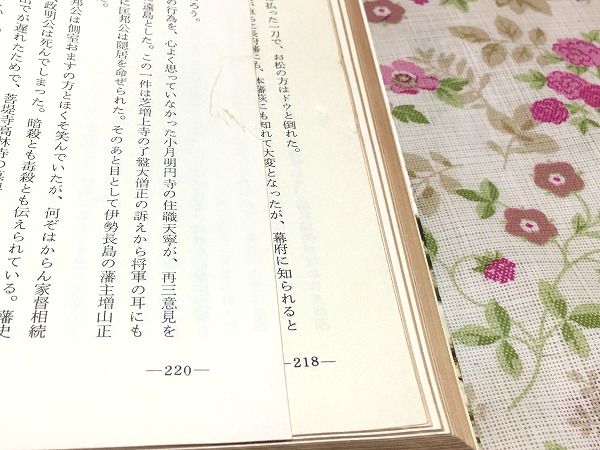 払った一刀で、お松の方はドウと倒れた。
長府藩にも、本藩萩にも知れて大変となったが、幕府に知られると
—218—
ろう。
の行為を、心よく思っていなかった小月明円寺の住職天寧が、再三意見を
遠島とした。この一件は芝増上寺の了盤大僧正の訴えから将軍の耳にも
に匡邦公は隠居を命ぜられた。そのあと目として伊勢長島の藩主増山正
邦公は側室おますの方とほくそ笑んでいたが、何ぞはからん家督相続
政明公は死んでしまった。暗殺とも毒殺とも伝えられている。藩史
出でが遅れたためで、菩提寺高林寺の墓
—220—